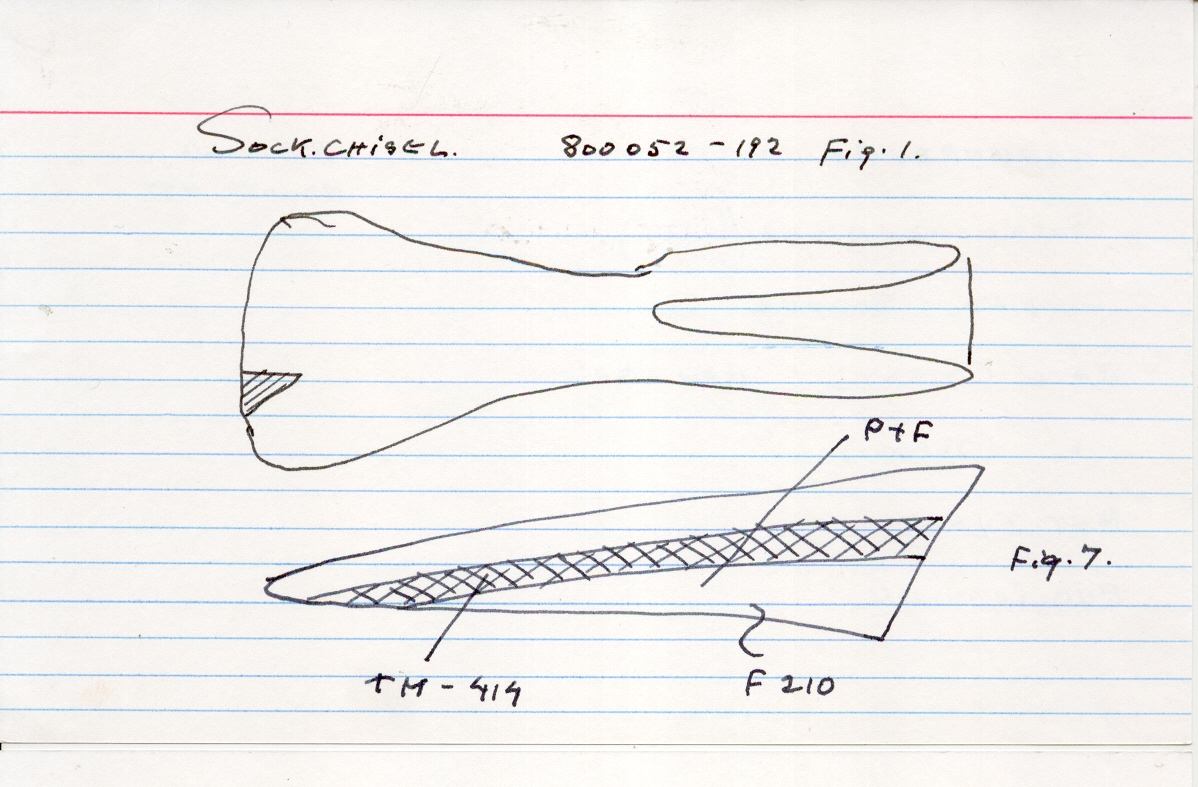 SOCK.CHiSEL. 800052-192 Fig.1.
P+F
Fig.7.
TM-414 F 210